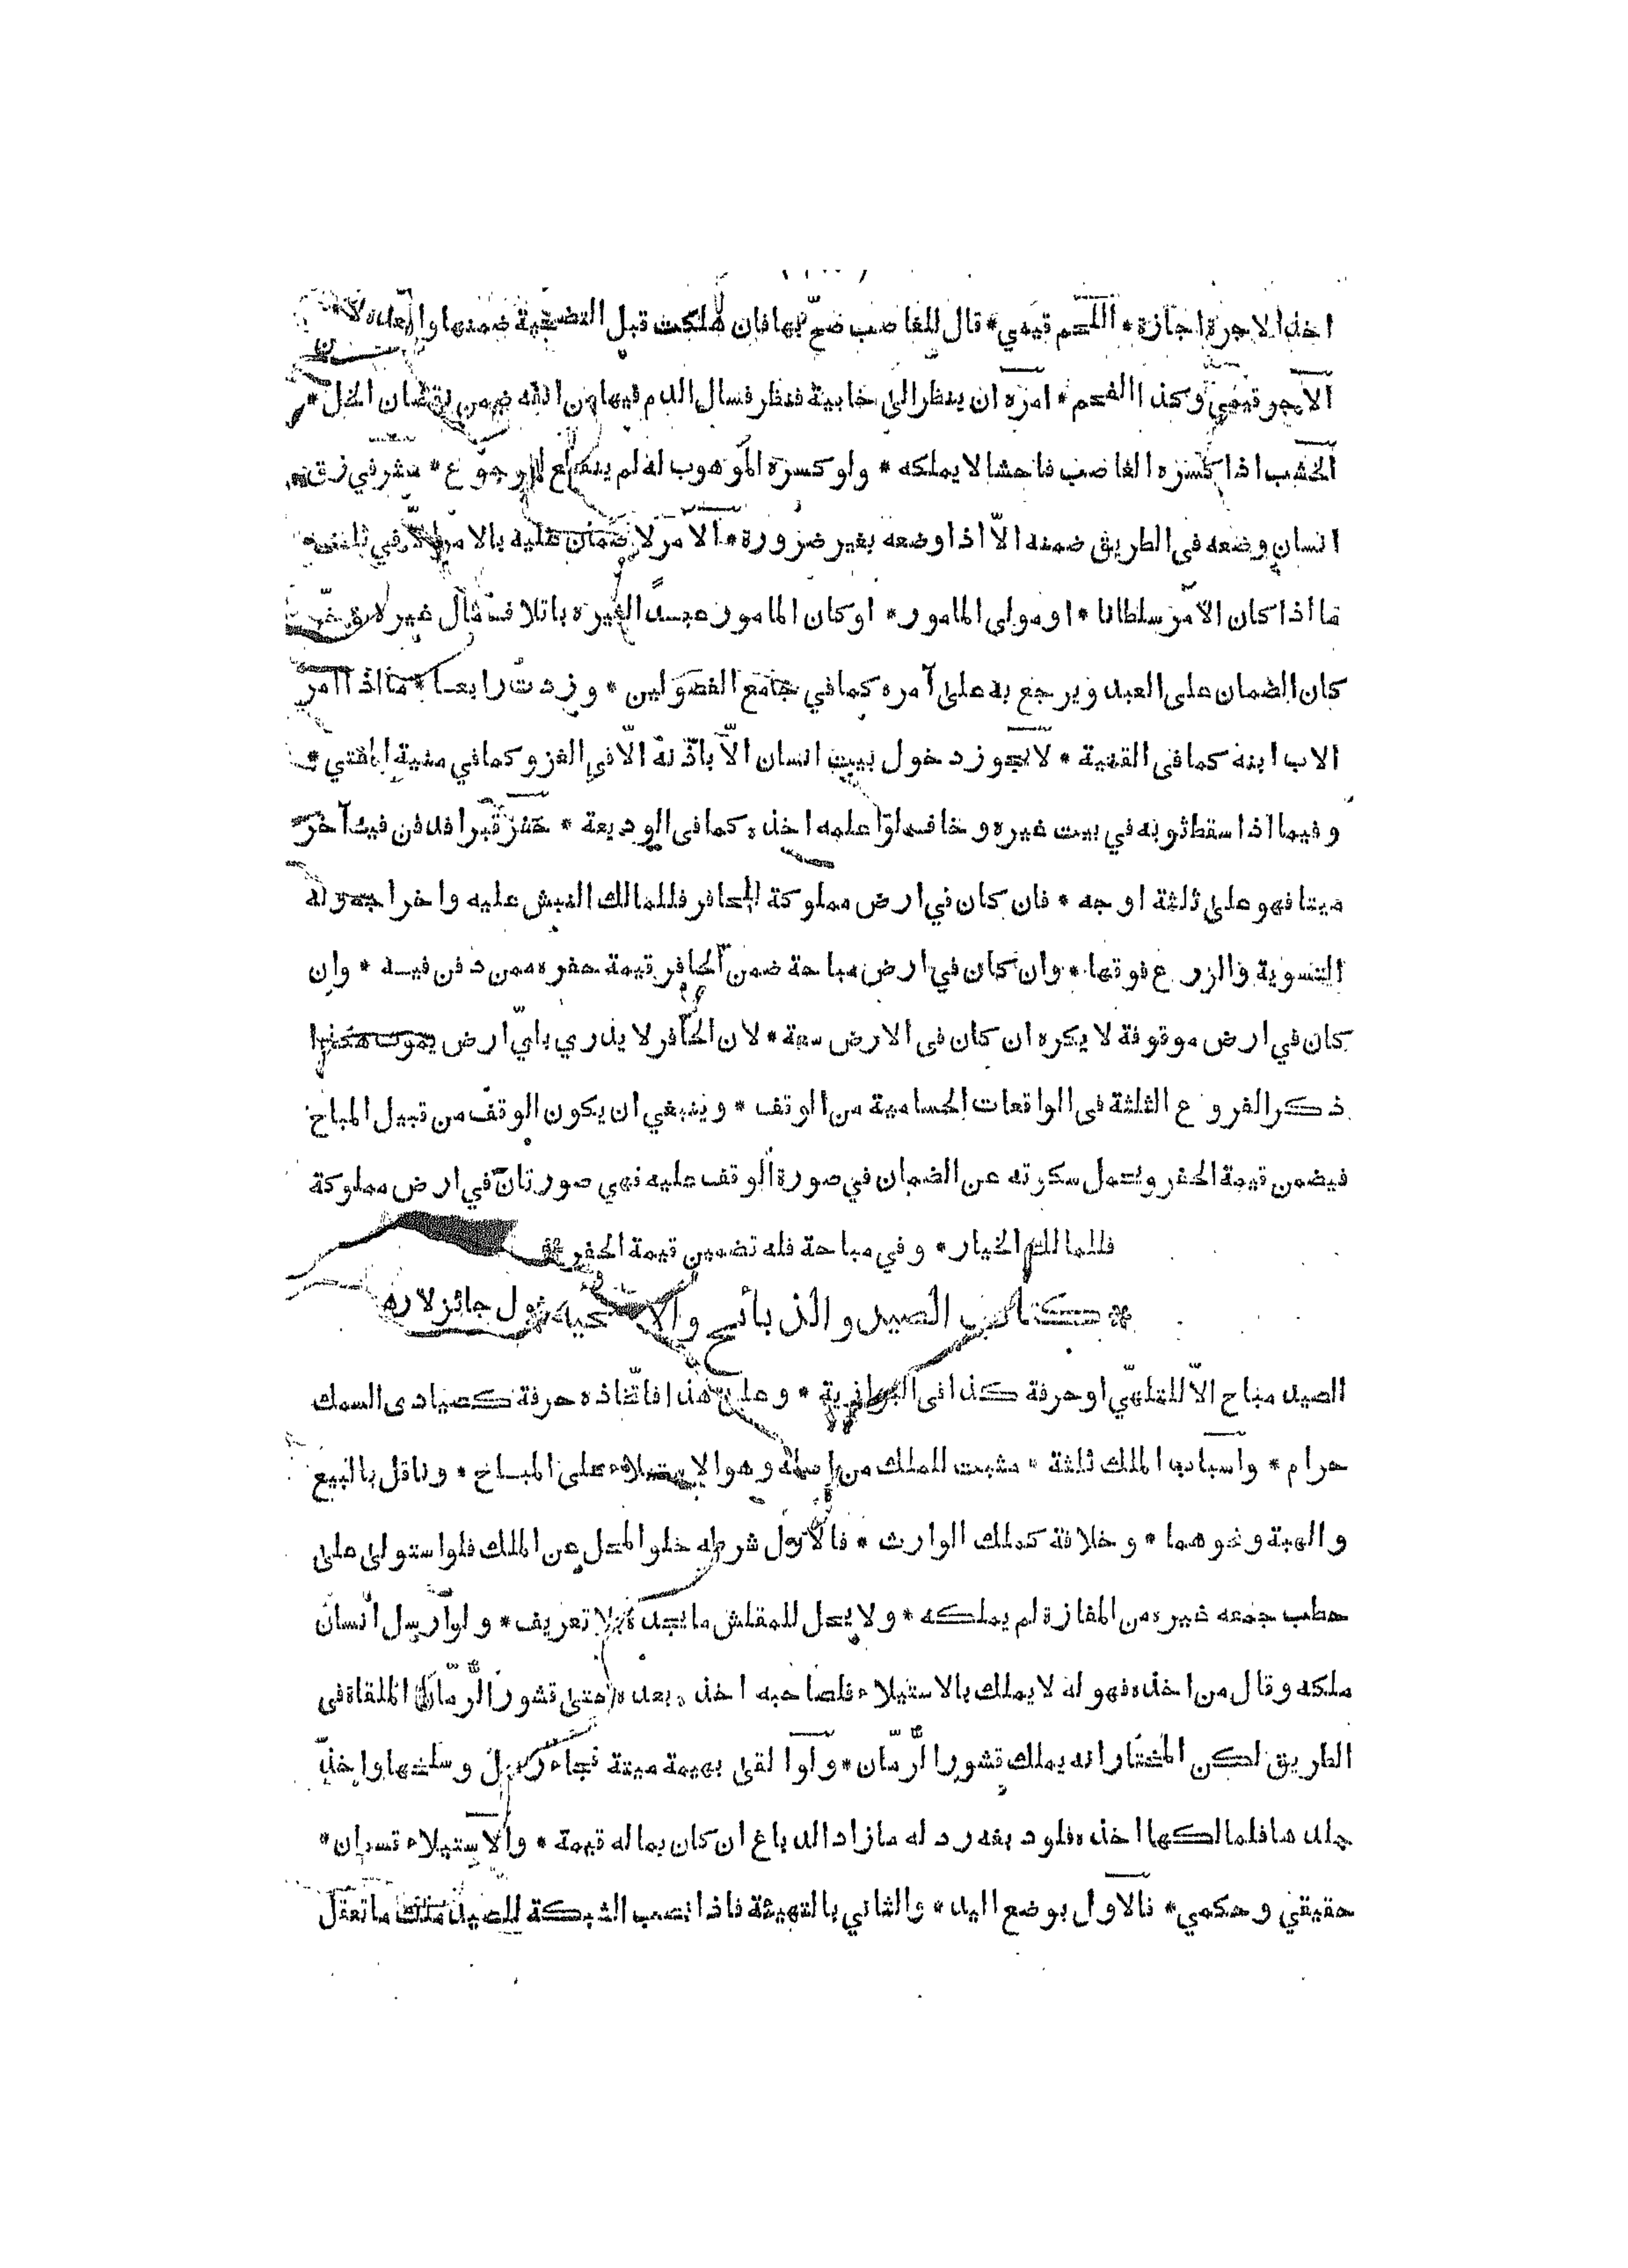 اخذ الاجرة اجازة * اللحم قيمي * قال للغاصب ضحّ بها فان هلكت قبل التضحية ضمنها والّا لا *
الآجر قيمي وكذا الفحم * امره ان ينظر الى خابية فنظر فسال الدم فيها من انفه ضمن نقصان الخل *
الخشب اذا كسره الغاصب فاحشا لا يملكه * ولو كسره الموهوب له لم ينقطع الرجوع * عثر في زق
انسان وضعه في الطريق ضمنه الّا اذا وضعه بغير ضرورة * الآمر لا ضمان عليه بالامر الّا في ثلاثة
ما اذا كان الآمر سلطانا * او مولى المامور * او كان المامور عبدًا لغيره باتلاف مال غير
كان الضمان على العبد ويرجع به على آمره كما في جامع الفصولين * وزدت رابعا * ما اذا امر
الاب ابنه كما في القنية * لا يجوز دخول بيت انسان الّا باذنه الّا في الغزو كما في منية المفتي *
وفيما اذا سقط ثوبه في بيت غيره وخاف لو اعلمه اخذه كما في الوديعة * حفر قبرا فدفن فيه آخر
ميتا فهو على ثلثة اوجه * فان كان في ارض مملوكة للحافر فللمالك النبش عليه واخراجه وله
التسوية والزرع فوقها * وان كان في ارض مباحة ضمن الحافر قيمة حفره ممن دفن فيه * وان
كان في ارض موقوفة لا يكره ان كان في الارض سعة * لان الحافر لا يدري باي ارض يموت
ذكر الفروع الثلثة في الواقعات الحسامية من الوقف * وينبغي ان يكون الوقف من قبيل المباح
فيضمن قيمة الحفر ويحمل سكوته عن الضمان في صورة الوقف عليه فهي صورتان في ارض مملوكة
فللمالك الخيار * وفي مباحة فله تضمين قيمة الحفر *
* كتاب الصيد والذبائح والاضحية
الصيد مباح الّا للتلهّي او حرفة كذا في البزازية * وعلى هذا فاتّخاذه حرفة كصيادي السمك
حرام * واسباب الملك ثلثة * مثبت للملك من اصله وهو الاستيلاء على المباح * وناقل بالبيع
والهبة ونحوهما * وخلافة كملك الوارث * فالاوّل شرطه خلو المحل عن الملك فلو استولى على
حطب جمعه غيره من المفازة لم يملكه * ولا يحل للمقلش ما يجده بلا تعريف * ولو ارسل انسان
ملكه وقال من اخذه فهو له لا يملك بالاستيلاء فلصاحبه اخذه بعده حتى قشور الرّمّان الملقاة في
الطريق لكن المختار انه يملك قشور الرّمّان * ولو القى بهيمة ميتة فجاء رجل وسلخها واخذ
جلدها فلمالكها اخذه فلو دبغه رد له ما زاد الدباغ ان كان بماله قيمة * والاستيلاء قسمان *
حقيقي وحكمي * فالاول بوضع اليد * والثاني بالتهيئة فاذا نصب الشبكة للصيد ملك ما تعقل